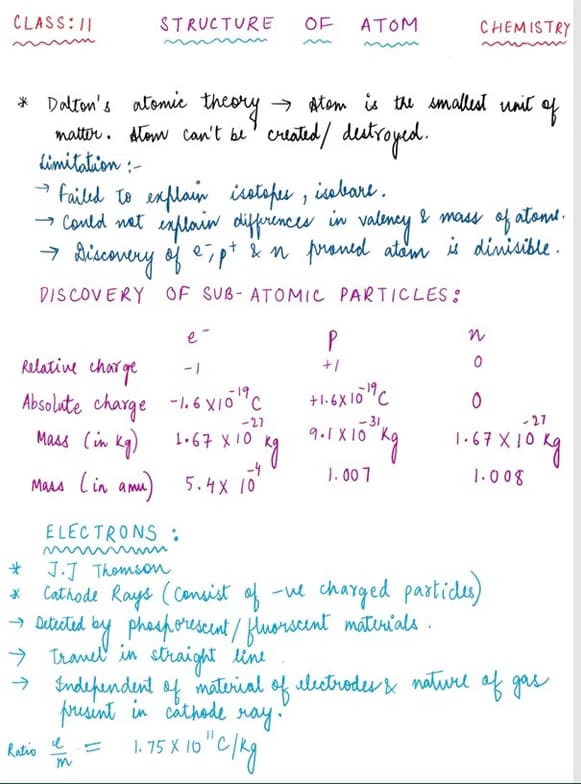 CLASS: 11 STRUCTURE OF ATOM CHEMISTRY
* Dalton's atomic theory → Atom is the smallest unit of
matter. Atom can't be created/ destroyed.
Limitation :-
→ Failed to explain isotopes, isobars.
→ Could not explain differences in valency & mass of atoms.
→ Discovery of e⁻, p⁺ & n proved atom is divisible.
DISCOVERY OF SUB-ATOMIC PARTICLES:
e⁻ p n
Relative charge -1 +1 0
Absolute charge -1.6 X10⁻¹⁹C +1.6X10⁻¹⁹C 0
Mass (in kg) 1.67 X10⁻²⁷ kg 9.1 X10⁻³¹ kg 1.67 X10⁻²⁷ kg
Mass (in amu) 5.4X 10⁻⁴ 1.007 1.008
ELECTRONS :
* J.J Thomson
* Cathode Rays (Consist of -ve charged particles)
→ Detected by phosporescent/ fluorscent materials.
→ Travel in straight line
→ Independent of material of electrodes & nature of gas
present in cathode ray.
Ratio e/m = 1.75 X 10¹¹ C/kg